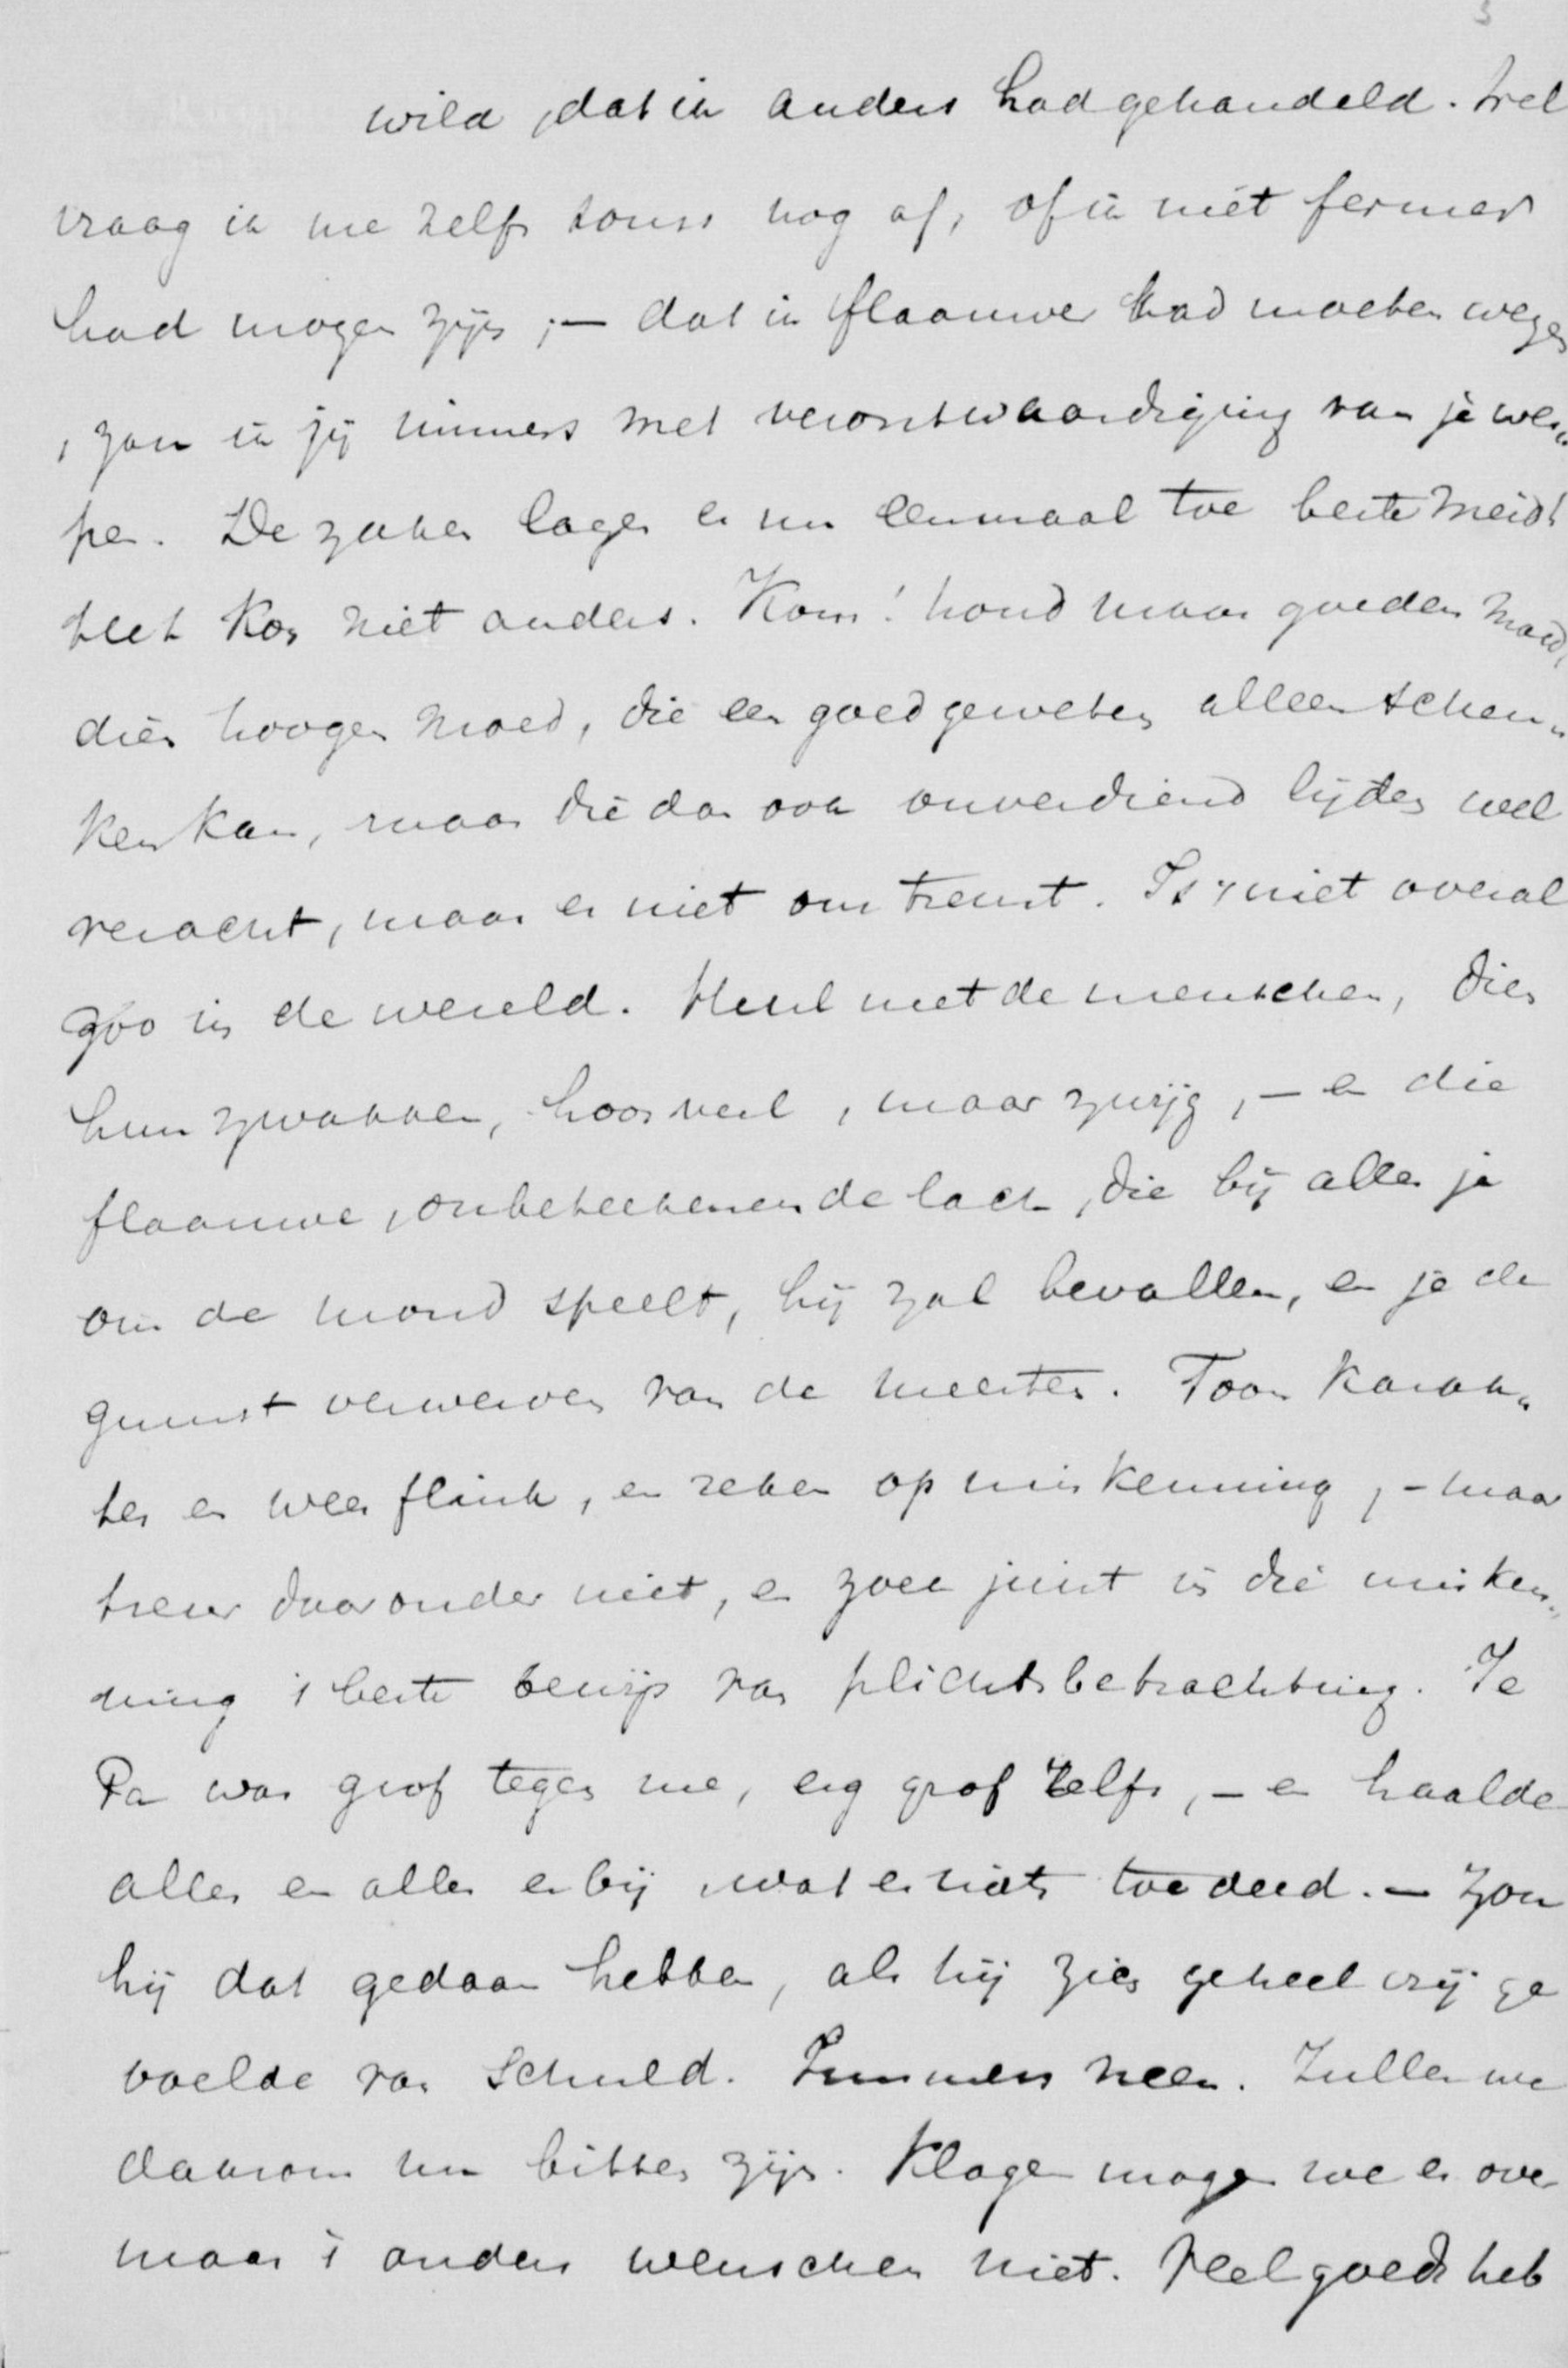 wild, dat ik anders had gehandeld. Wel
vraag ik me zelfs soms nog af, of ik niet fermer
had mogen zijn; – dat ik flaauwer had moeten wezen
, zou ik jij immers met verontwaardiging van je wer„
pen. De zaken lagen er nu eenmaal toe beste meid!
het kon niet anders. Kom! houd maar goeden moed,
dien hoogen moed, die een goed geweten alleen schen„
ken kan, maar die dan ook onverdiend lijden wel
veracht, maar er niet om treurt. Is 't niet overal
zoo in de wereld. Huil met de menschen, dien
hun zwakken, hoor veel, maar zwijg, – en die
flaauwe, onbeteekenende lach, die bij allen je
om de mond speelt, hij zal bevallen, en je de
gunst verwerven van de meesten. Toon karak„
ter en wees flink, en reken op miskenning, – maar
treur daaronder niet, en zoek juist in die misken„
ning 't beste bewijs van plichtsbetrachting. Je
Pa was grof tegen me, erg grof zelfs, – en haalde
alles en alles er bij, wat er niets toe deed. – Zou
hij dat gedaan hebben, als hij zich geheel vrij ge
voelde van schuld. Immers neen. Zullen we
daarom nu bitter zijn. Klagen mogen we er over
maar 't anders wenschen niet. Veel goeds heb